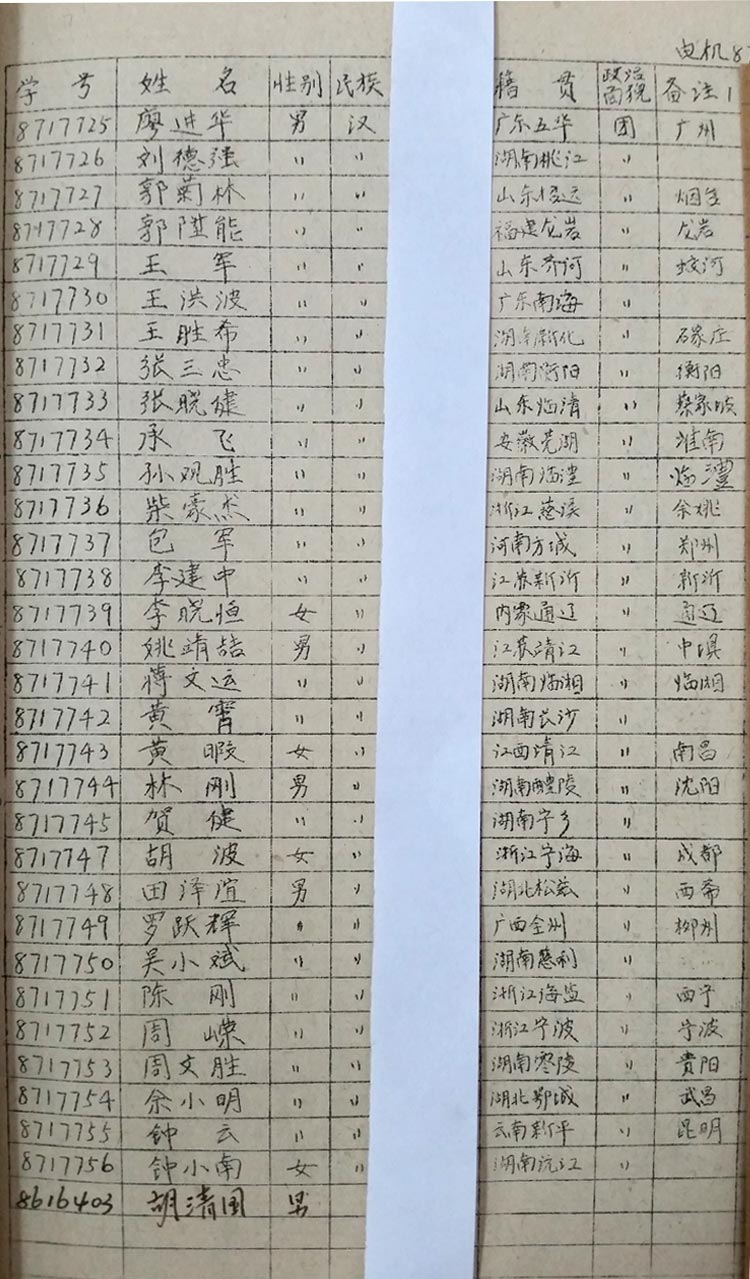 电机8
学号 姓名 性别 民族 籍贯 政治面貌 备注
8717725 廖进华 男 汉 广东五华 团 广州
8717726 刘德强 〃 〃 湖南桃江 〃
8717727 郭菊林 〃 〃 山东招远 〃 烟台
8717728 郭陞能 〃 〃 福建龙岩 〃 龙岩
8717729 王军 〃 〃 山东齐河 〃 蛟河
8717730 王洪波 〃 〃 广东南海 〃
8717731 王胜希 〃 〃 湖南新化 〃 石家庄
8717732 张三忠 〃 〃 湖南衡阳 〃 衡阳
8717733 张晓健 〃 〃 山东临清 〃 蔡家坡
8717734 承飞 〃 〃 安徽芜湖 〃 淮南
8717735 孙观胜 〃 〃 湖南临澧 〃 临澧
8717736 柴豪杰 〃 〃 浙江慈溪 〃 余姚
8717737 包军 〃 〃 河南方城 〃 郑州
8717738 李建中 〃 〃 江苏新沂 〃 新沂
8717739 李晓恒 女 〃 内蒙通辽 〃 通辽
8717740 姚靖喆 男 〃 江苏靖江 〃
8717741 蒋文运 〃 〃 湖南临湘 〃 临湘
8717742 黄霄 〃 〃 湖南长沙 〃
8717743 黄暇 女 〃 江西清江 〃 南昌
8717744 林刚 男 〃 湖南醴陵 〃 沈阳
8717745 贺健 〃 〃 湖南宁乡 〃
8717747 胡波 女 〃 浙江宁海 〃 成都
8717748 田泽谊 男 〃 湖北松滋 〃 西斋
8717749 罗跃辉 〃 〃 广西全州 〃 柳州
8717750 吴小斌 〃 〃 湖南慈利 〃
8717751 陈刚 〃 〃 浙江海盐 〃 西宁
8717752 周嵘 〃 〃 浙江宁波 〃 宁波
8717753 周文胜 〃 〃 湖南零陵 〃 贵阳
8717754 余小明 〃 〃 湖北鄂城 〃 武昌
8717755 钟云 〃 〃 云南新平 〃 昆明
8717756 钟小南 女 〃 湖南沅江 〃
8616403 胡清国 男